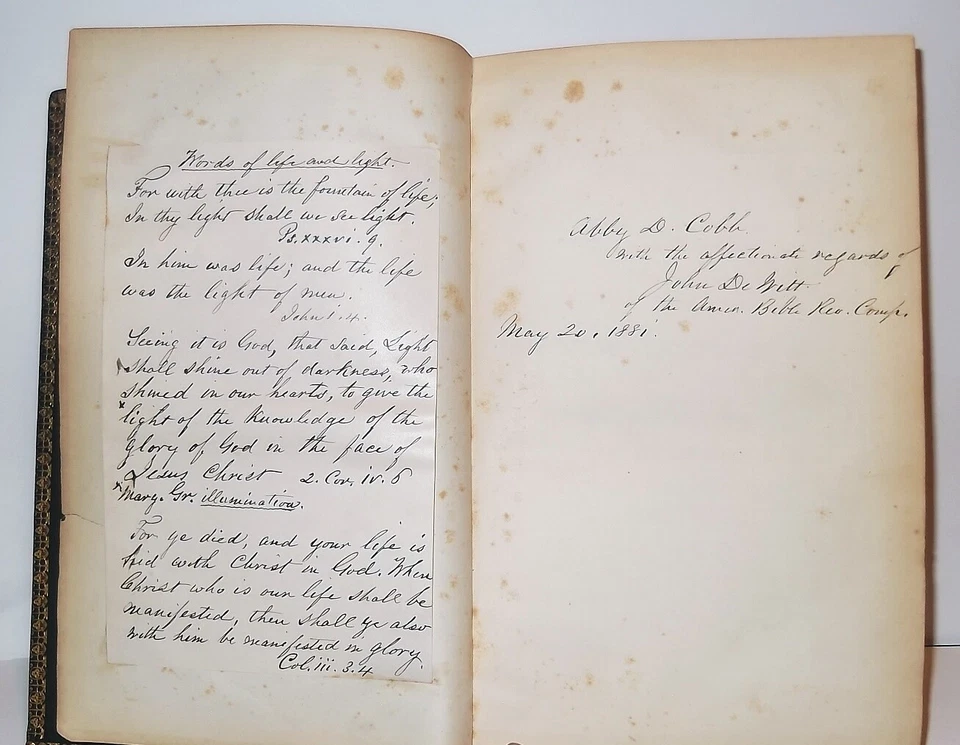 Words of life and light.
For with thee is the fountain of life;
In thy light shall we see light.
Ps. xxxvi. 9.
In him was life; and the life
was the light of men.
John 1. 4.
Seeing it is God, that said, Light
shall shine out of darkness, who
shined in our hearts, to give the
x light of the knowledge of the
glory of God in the face of
Jesus Christ 2. Cor. iv. 6
x Marg. Gr. illumination.
For ye died, and your life is
hid with Christ in God. When
Christ who is our life shall be
manifested, then shall ye also
with him be manifested in glory.
Col. iii. 3.4
Abby D. Cobb.
with the affectionate regards of
John De Witt
of the Amer. Bible Rev. Comp.
May 20, 1881.